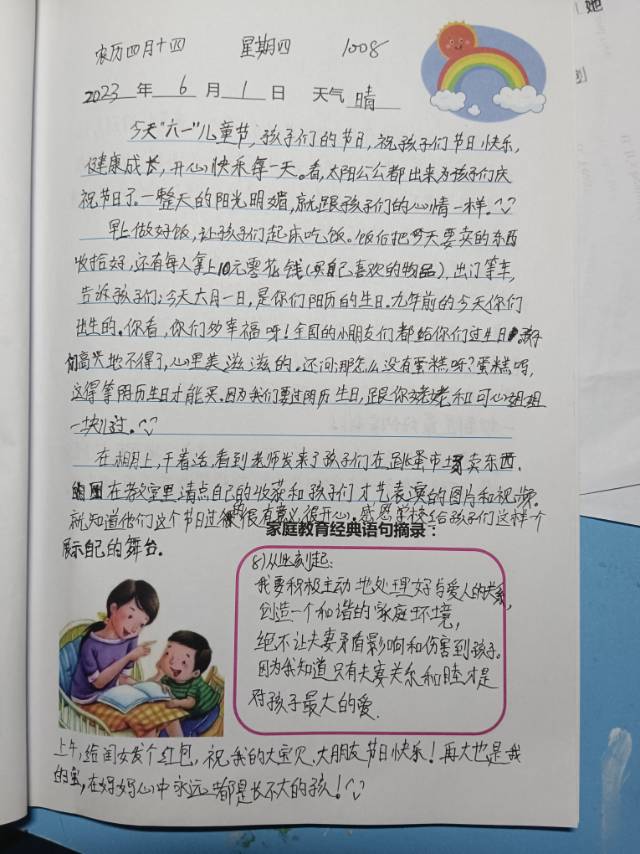 农历四月十四 星期四 1008
2023年6月1日 天气 晴
今天"六一"儿童节,孩子们的节日,祝孩子们节日快乐,
健康成长,开心快乐每一天。看,太阳公公都出来为孩子们庆
祝节日了。一整天的阳光明媚,就跟孩子们的心情一样。
早上做好饭,让孩子们起床吃饭。饭后把今天要卖的东西
收拾好,还有每人拿上10元零花钱(买自己喜欢的物品),出门等车,
告诉孩子们:今天六月一日,是你们阳历的生日。九年前的今天你们
出生的。你看,你们多幸福呀!全国的小朋友们都给你们过生日。孩子
们高兴地不得了,心里美滋滋的。还问:那怎么没有蛋糕呀?蛋糕吗,
这得等阴历生日才能买。因为我们要过阴历生日,跟你姥姥和可心姐姐
一块儿过。
在棚上,干着活,看到老师发来了孩子们在跳蚤市场卖东西,
在教室里清点自己的收获和孩子们才艺表演的图片和视频。
就知道他们这个节日过的很有意义,很开心。感恩学校给孩子们这样一个
展示自己的舞台。
家庭教育经典语句摘录:
8)从此刻起:
我要积极主动地处理好与爱人的关系,
创造一个和谐的家庭环境,
绝不让夫妻矛盾影响和伤害到孩子。
因为我知道只有夫妻关系和睦才是
对孩子最大的爱.
上午,给闺女发个红包,祝我的大宝贝、大朋友节日快乐!再大也是我
的宝,在妈妈心中永远都是长不大的孩!